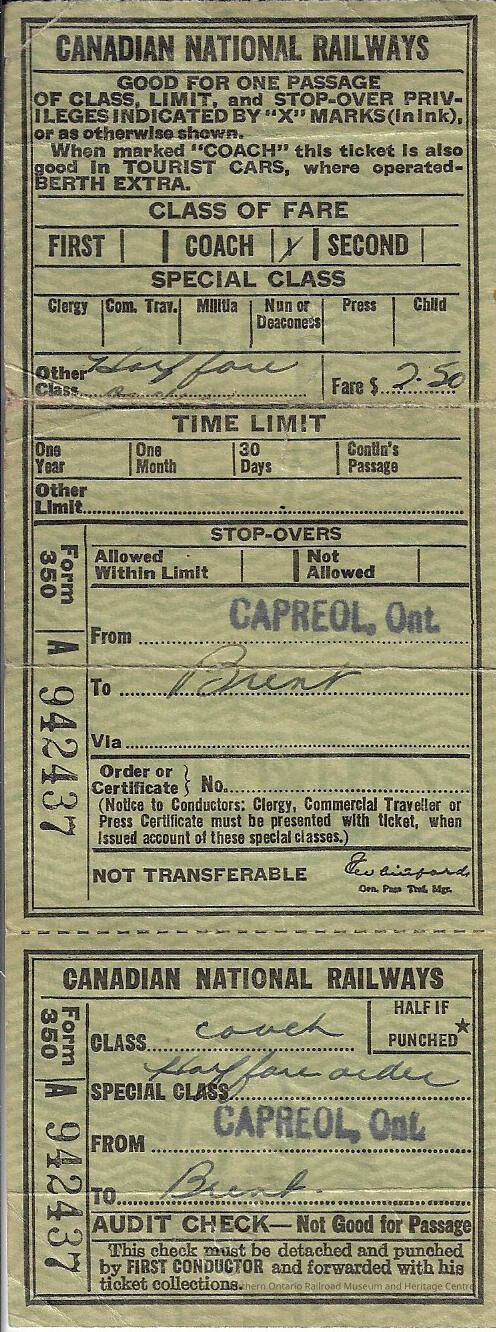 CANADIAN NATIONAL RAILWAYS
GOOD FOR ONE PASSAGE
OF CLASS, LIMIT, and STOP-OVER PRIV-
ILEGES INDICATED BY "X" MARKS (in ink),
or as otherwise shown.
When marked "COACH" this ticket is also
good in TOURIST CARS, where operated-
BERTH EXTRA.
CLASS OF FARE
FIRST COACH X SECOND
SPECIAL CLASS
Clergy Com. Trav. Militia Nun or Deaconess Press Child
Other Class Half fare
Fare $ 2.50
TIME LIMIT
One Year One Month 30 Days Contin's Passage
Other Limit
STOP-OVERS
Allowed Within Limit Not Allowed
Form 350 A 942437
From CAPREOL, Ont.
To Brent
Via
Order or Certificate } No.
(Notice to Conductors: Clergy, Commercial Traveller or
Press Certificate must be presented with ticket, when
issued account of these special classes.)
NOT TRANSFERABLE
Gen. Pass Traf. Mgr.
CANADIAN NATIONAL RAILWAYS
HALF IF PUNCHED ★
CLASS coach
SPECIAL CLASS Half fare order
FROM CAPREOL, Ont.
TO Brent
Form 350 A 942437
AUDIT CHECK—Not Good for Passage
This check must be detached and punched
by FIRST CONDUCTOR and forwarded with his
ticket collections.
Northern Ontario Railroad Museum and Heritage Centre